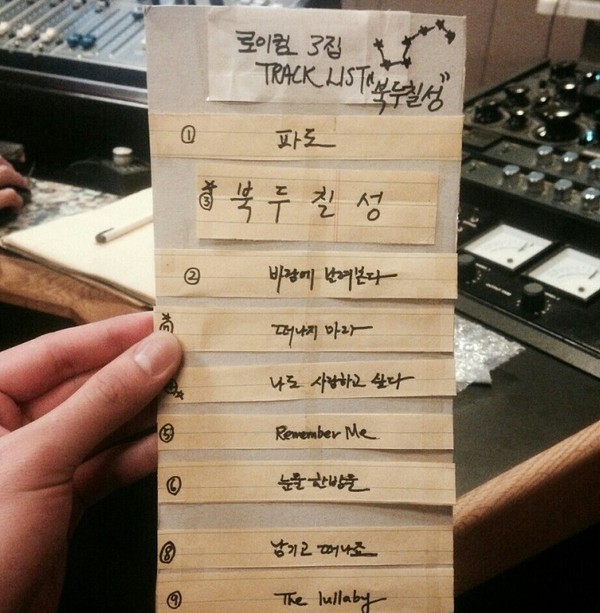 로이킴 3집
TRACK LIST
"북두칠성"
① 파도
* ③ 북두칠성
② 바람에 날려본다
* ⑦ 떠나지 마라
④ * 나도 사랑하고 싶다
⑤ Remember Me
⑥ 눈물 한방울
⑧ 남기고 떠나죠
⑨ The lullaby